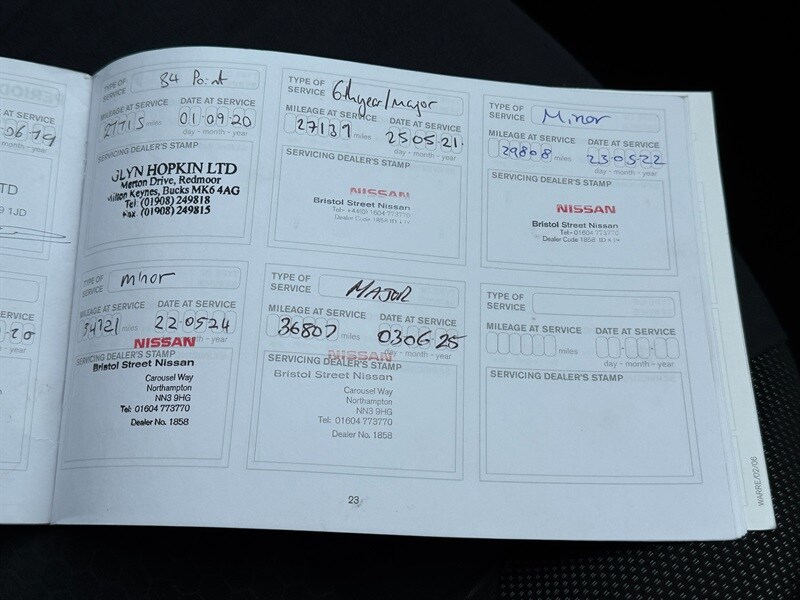 06 19
TYPE OF SERVICE 34 Point
MILEAGE AT SERVICE DATE AT SERVICE
miles 01 09 20
day - month - year
SERVICING DEALER'S STAMP
GLYN HOPKIN LTD
Merton Drive, Redmoor
Milton Keynes, Bucks MK6 4AG
Tel: (01908) 249818
Fax. (01908) 249815
TYPE OF SERVICE 6th year/major
MILEAGE AT SERVICE DATE AT SERVICE
27137 miles 25 05 21
day - month - year
SERVICING DEALER'S STAMP
NISSAN
Bristol Street Nissan
Tel:- +44(0) 1604 773770
Dealer Code 1858
TYPE OF SERVICE Minor
MILEAGE AT SERVICE DATE AT SERVICE
29808 miles 23 05 22
day - month - year
SERVICING DEALER'S STAMP
NISSAN
Bristol Street Nissan
Tel:- 01604 773770
Dealer Code 1858
LTD
9 1JD
20
year
TYPE OF SERVICE minor
MILEAGE AT SERVICE DATE AT SERVICE
34721 miles 22 05 24
month - year
NISSAN
SERVICING DEALER'S STAMP
Bristol Street Nissan
Carousel Way
Northampton
NN3 9HG
Tel: 01604 773770
Dealer No. 1858
TYPE OF SERVICE MAJOR
MILEAGE AT SERVICE DATE AT SERVICE
36807 miles 03 06 25
day - month - year
NISSAN
SERVICING DEALER'S STAMP
Bristol Street Nissan
Carousel Way
Northampton
NN3 9HG
Tel: 01604 773770
Dealer No. 1858
TYPE OF SERVICE
MILEAGE AT SERVICE DATE AT SERVICE
miles
day - month - year
SERVICING DEALER'S STAMP
23
WARRE/02/06